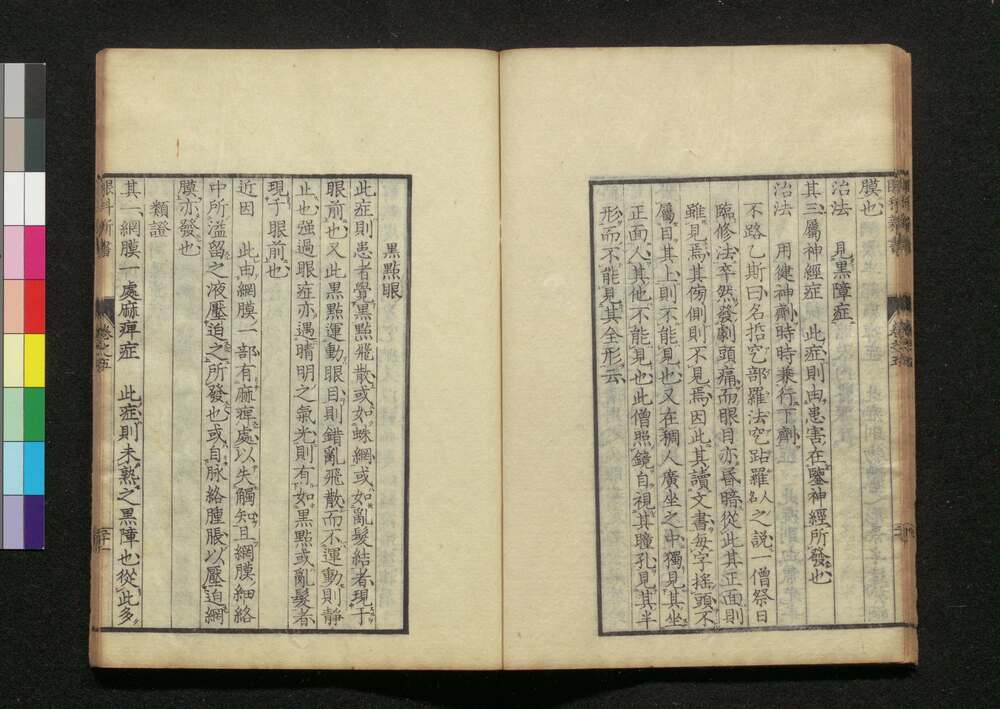 膜也
治法　見黒障症
其三屬神經症　此症則由患害在鑒神經所發也
治法　用健神劑時時兼行下劑
不路乙斯曰名哲究部羅法究跕羅人名之説一僧祭日
臨修法卒然發劇頭痛而眼目亦昏暗從此其正面則
雖見焉其傍側則不見焉因此其讀文書每字搖頭不
屬目其上則不能見也又在稠人廣坐之中獨見其坐
正面人其他不能見也此僧照鏡自視其瞳孔見其半
形而不能見其全形云
黒㸃眼
此症則患者覺黒㸃飛散或如蛛網或如亂髮結者現于
眼前也又此黒㸃運動眼目則錯亂飛散而不運動則靜
止也強過眼症亦遇晴明之氣光則有如黒㸃或亂髮者
現于眼前也
近因　此由網膜一部有麻痺處以失觸知且網膜細絡
中所溢留之液壓迫之所發也或自脉絡腫脹以壓迫網
膜亦發也
類證
其一網膜一處麻痺症　此症則未熟之黒障也從此多
眼科新書
卷之五